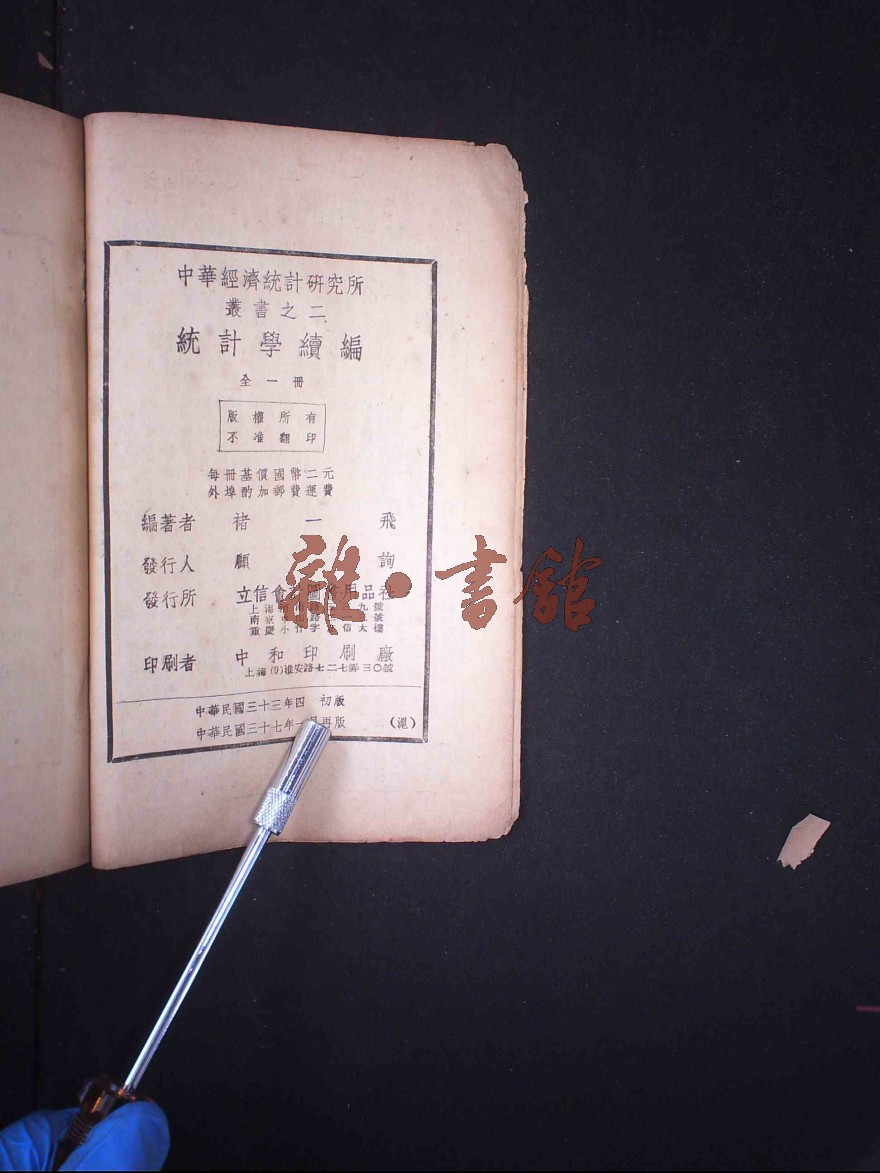 中華經濟統計研究所
叢書之二
統計學續編
全一冊
版權所有
不准翻印
每冊基價國幣二元
外埠酌加郵費運費
編著者 褚一飛
發行人 顧詢
發行所 立信會計圖書用品社
上海 九號
南京 路 號
重慶小 字 信大樓
印刷者 中和印刷廠
上海(9)淮安路七二七弄三〇號
中華民國三十三年四 初版
中華民國三十七年一月再版 (滬)
雜·書館